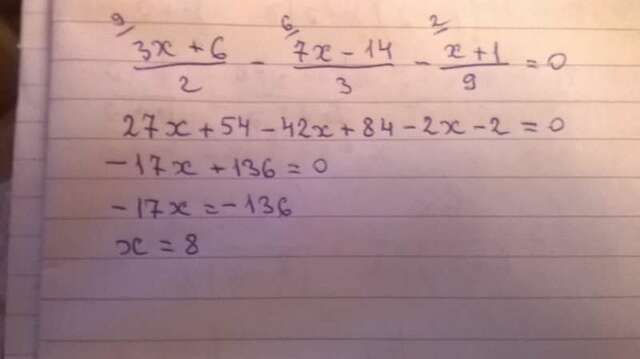 9/ 3x + 6 / 2 - 6/ 7x - 14 / 3 - 2/ x + 1 / 9 = 0
27x + 54 - 42x + 84 - 2x - 2 = 0
-17x + 136 = 0
-17x = -136
x = 8